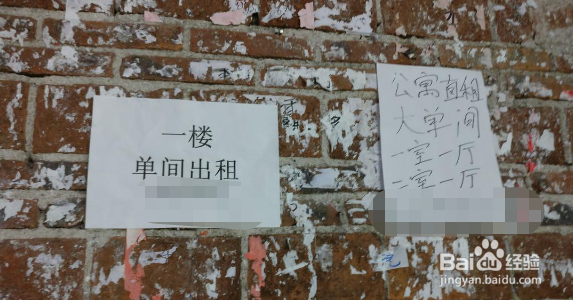 一楼
单间出租
公寓自租
大单间
一室一厅
二室一厅
Baidu 经验
jingyan.baidu.com